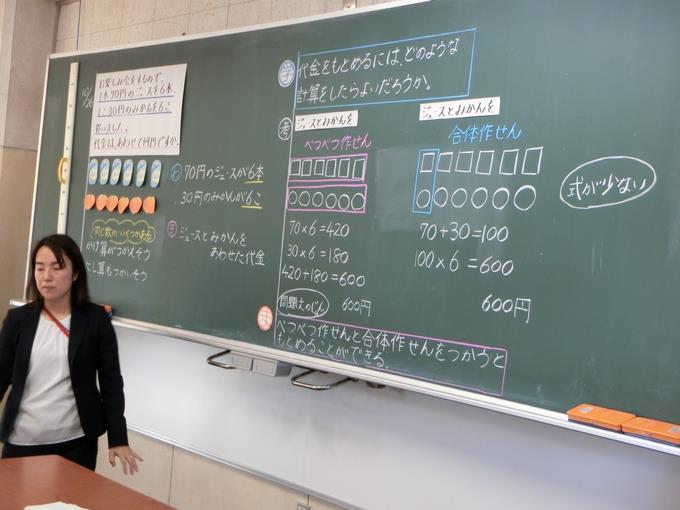 10/26
お楽しみ会をするので、
1本70円のジュースを6本、
1こ30円のみかんを6こ
買いました。
代金は、あわせて何円ですか。
わ 70円のジュースが6本
30円のみかんが6こ
ま ジュースとみかんを
あわせた代金
同じ数のいくつかある
かけ算がつかえそう
たし算もつかいそう
学 代金をもとめるには、どのような
計算をしたらよいだろうか。
考 ジュースとみかんを
べつべつ作せん
70×6=420
30×6=180
420+180=600
問題文のじゅん
600円
ジュースとみかんを
合体作せん
70+30=100
100×6=600
600円
式が少ない
べつべつ作せんと合体作せんをつかうと
もとめることができる。